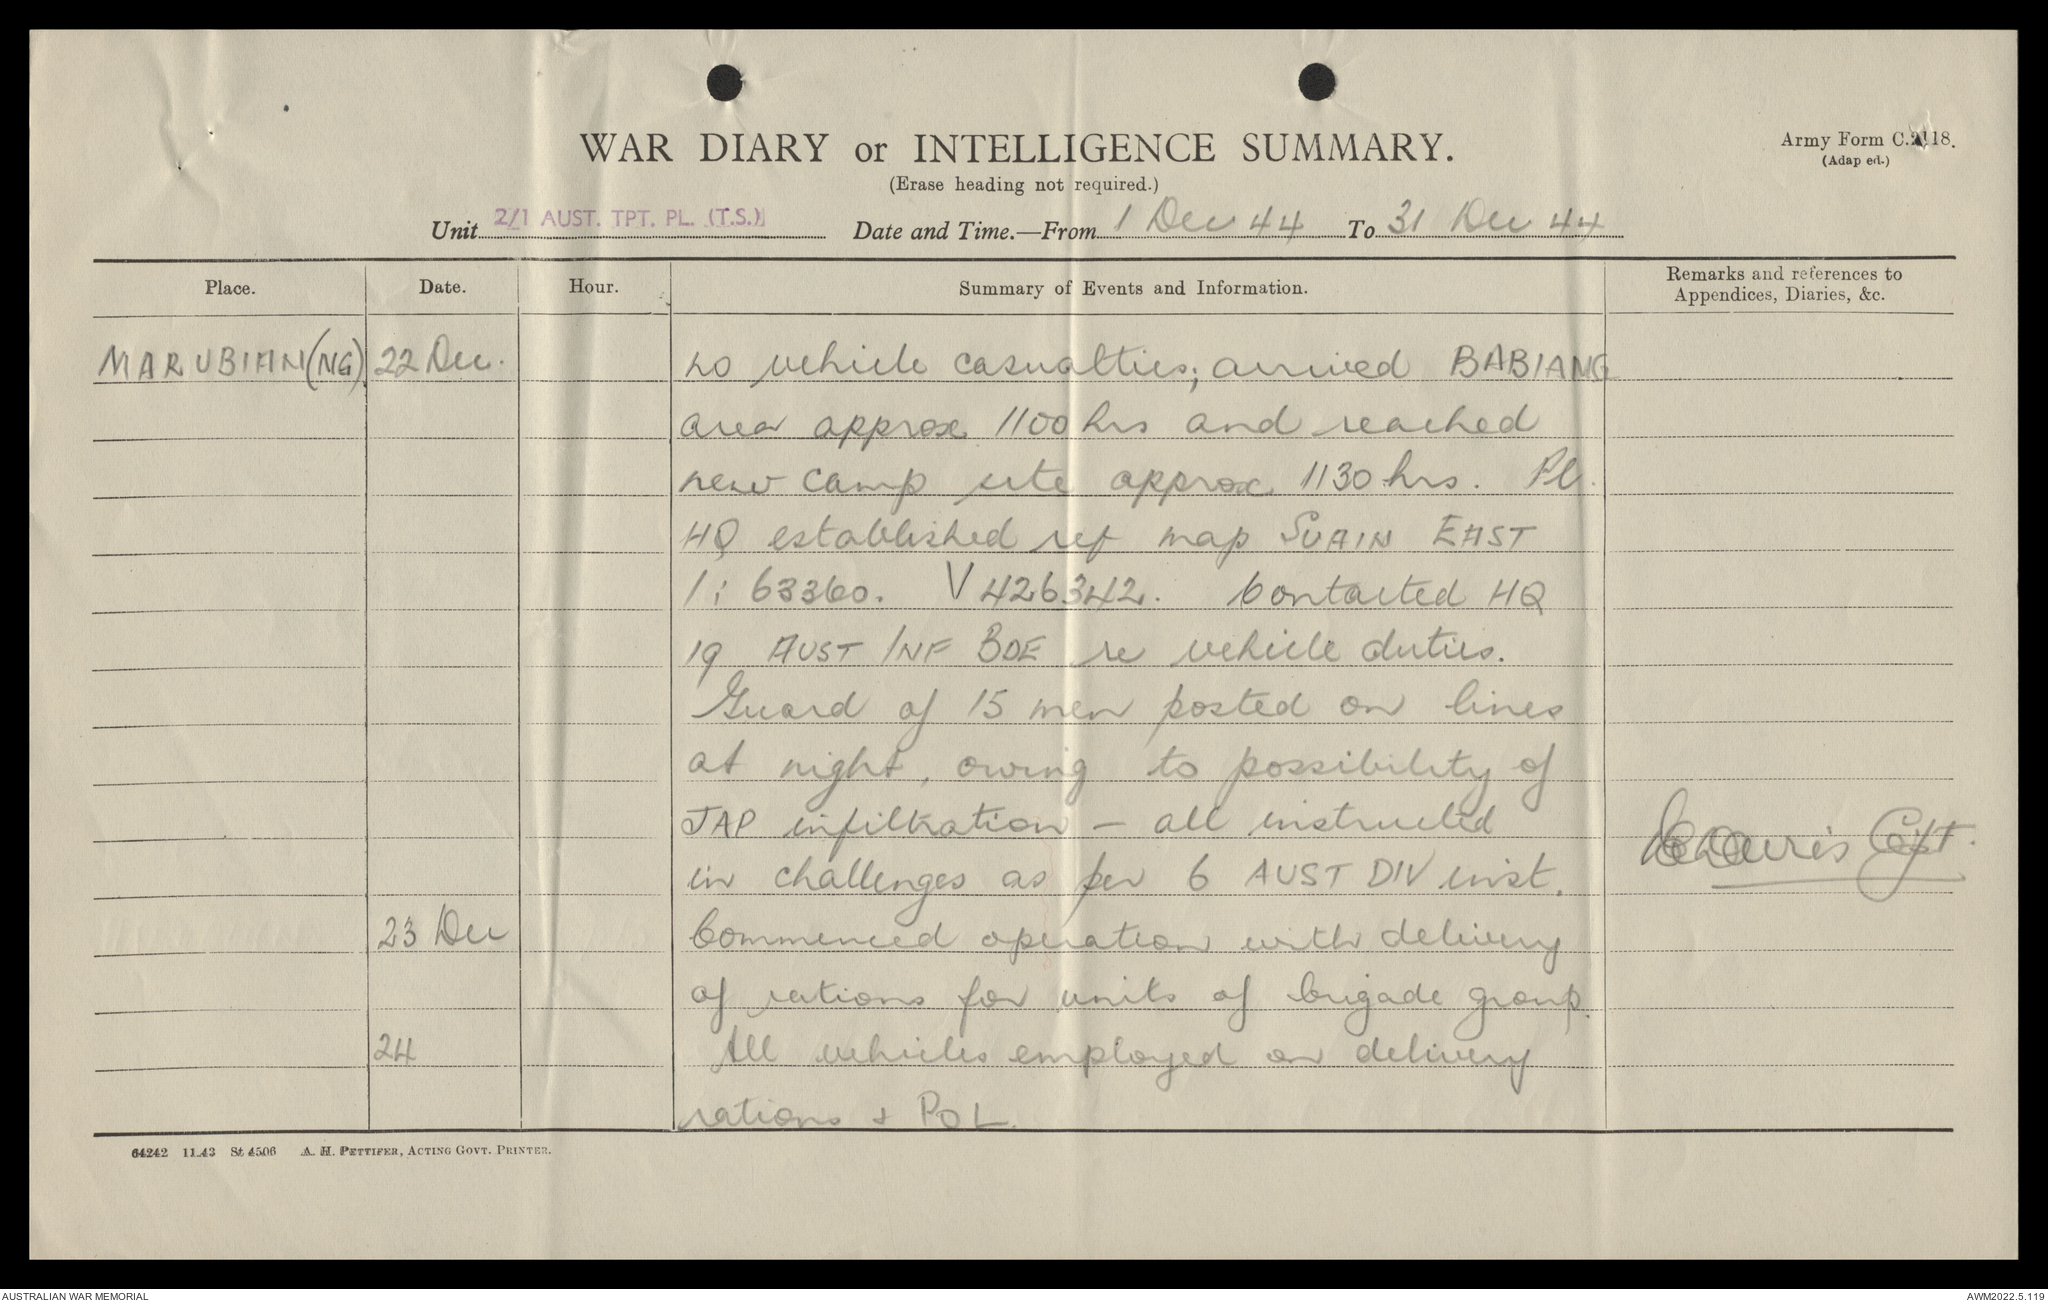 WAR DIARY or INTELLIGENCE SUMMARY.
Army Form C.2118.
(Adap ed.)
(Erase heading not required.)
Unit 2/1 AUST. TPT. PL. (T.S.) Date and Time.—From 1 Dec 44 To 31 Dec 44
Place. Date. Hour. Summary of Events and Information. Remarks and references to
Appendices, Diaries, &c.
MARUBIAN (NG) 22 Dec. no vehicle casualties; arrived BABIANG
area approx 1100 hrs and reached
new camp site approx 1130 hrs. Pl.
HQ established ref map SUAIN EAST
1:63360. V426342. Contacted HQ
19 AUST INF BDE re vehicle duties.
Guard of 15 men posted on lines
at night, owing to possibility of
JAP infiltration – all instructed
in challenges as per 6 AUST DIV inst.
Davis Capt.
23 Dec Commenced operation with delivery
of rations for units of brigade group.
24 All vehicles employed on delivery
rations + POL.
64242 11.43 St 4506 A. H. PETTIFER, ACTING GOVT. PRINTER.
AUSTRALIAN WAR MEMORIAL AWM2022.5.119